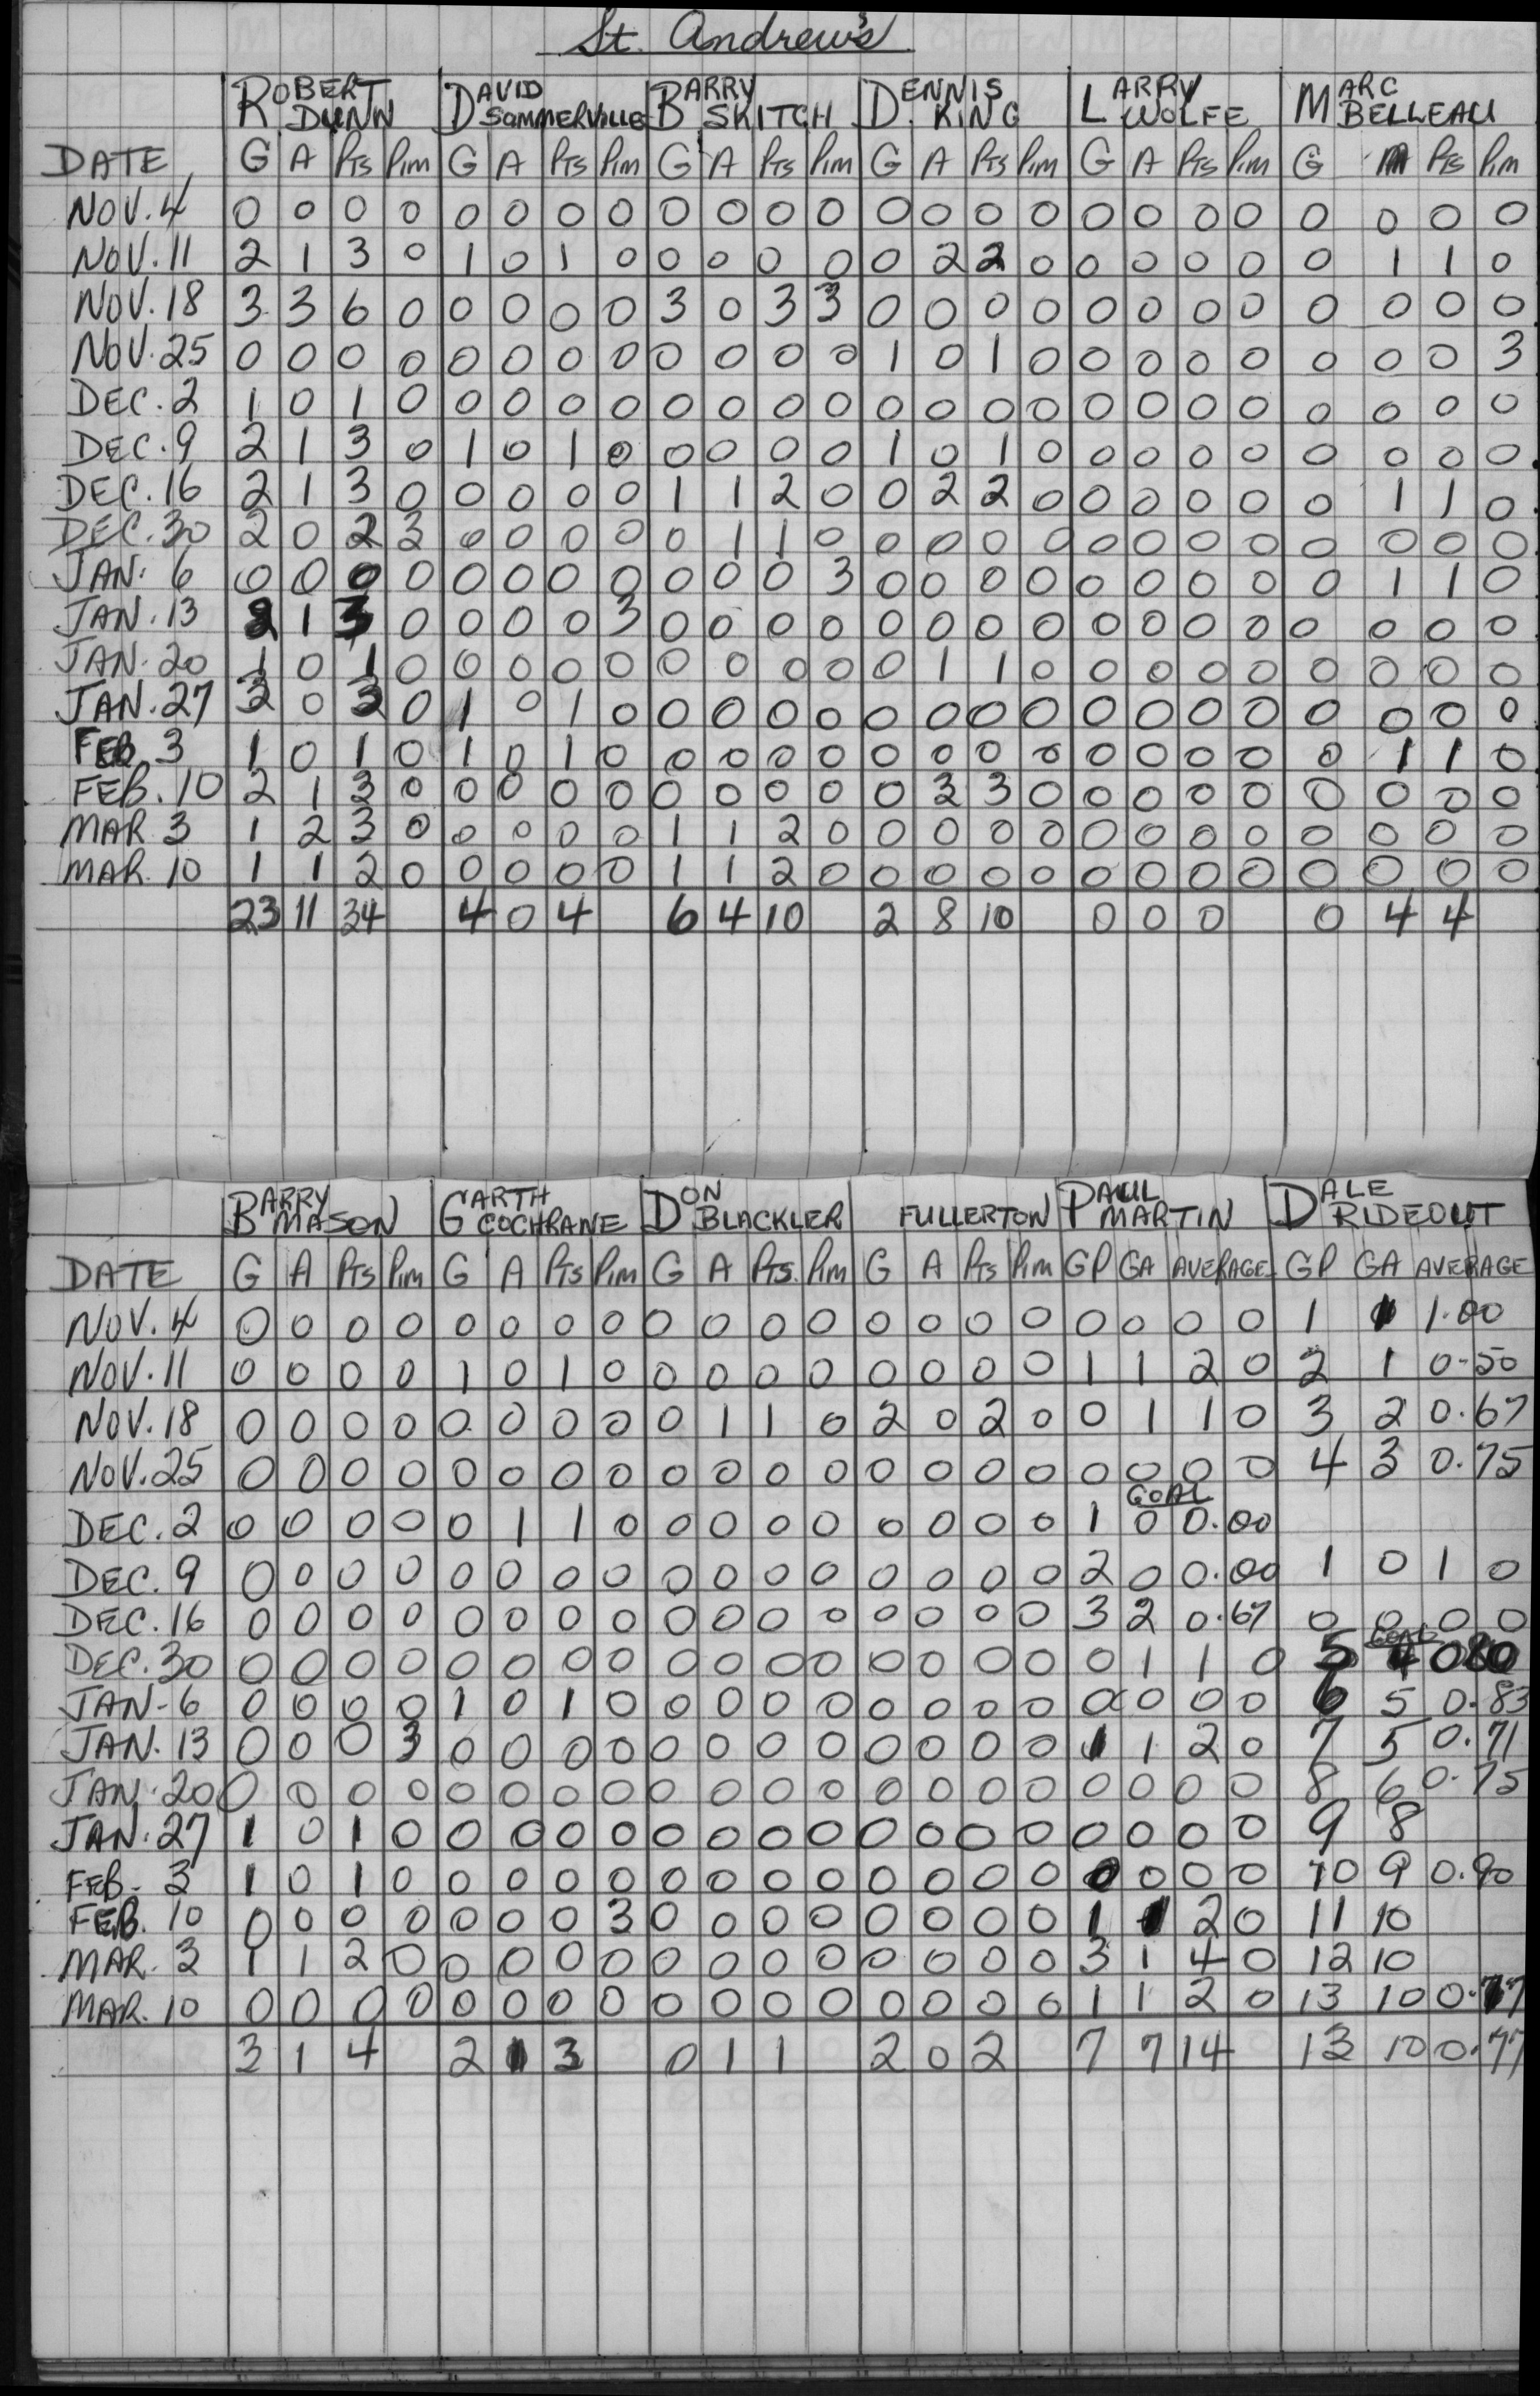 St. Andrew's
ROBERT DUNN DAVID SOMMERVILLE BARRY SKITCH DENNIS KING LARRY WOLFE MARC BELLEAU
DATE G A Pts Pim G A Pts Pim G A Pts Pim G A Pts Pim G A Pts Pim G A Pts Pim
NOV. 4 0 0 0 0 0 0 0 0 0 0 0 0 0 0 0 0 0 0 0 0 0 0 0 0
NOV. 11 2 1 3 0 1 0 1 0 0 0 0 0 0 2 2 0 0 0 0 0 0 1 1 0
NOV. 18 3 3 6 0 0 0 0 0 3 0 3 3 0 0 0 0 0 0 0 0 0 0 0 0
NOV. 25 0 0 0 0 0 0 0 0 0 0 0 0 1 0 1 0 0 0 0 0 0 0 0 3
DEC. 2 1 0 1 0 0 0 0 0 0 0 0 0 0 0 0 0 0 0 0 0 0 0 0 0
DEC. 9 2 1 3 0 1 0 1 0 0 0 0 0 1 0 1 0 0 0 0 0 0 0 0 0
DEC. 16 2 1 3 0 0 0 0 0 1 1 2 0 0 2 2 0 0 0 0 0 0 1 1 0
DEC. 30 2 0 2 3 0 0 0 0 0 1 1 0 0 0 0 0 0 0 0 0 0 0 0 0
JAN. 6 0 0 0 0 0 0 0 0 0 0 0 3 0 0 0 0 0 0 0 0 0 1 1 0
JAN. 13 2 1 3 0 0 0 0 3 0 0 0 0 0 0 0 0 0 0 0 0 0 0 0 0
JAN. 20 1 0 1 0 0 0 0 0 0 0 0 0 0 1 1 0 0 0 0 0 0 0 0 0
JAN. 27 3 0 3 0 1 0 1 0 0 0 0 0 0 0 0 0 0 0 0 0 0 0 0 0
FEB. 3 1 0 1 0 1 0 1 0 0 0 0 0 0 0 0 0 0 0 0 0 0 1 1 0
FEB. 10 2 1 3 0 0 0 0 0 0 0 0 0 0 3 3 0 0 0 0 0 0 0 0 0
MAR. 3 1 2 3 0 0 0 0 0 1 1 2 0 0 0 0 0 0 0 0 0 0 0 0 0
MAR. 10 1 1 2 0 0 0 0 0 1 1 2 0 0 0 0 0 0 0 0 0 0 0 0 0
23 11 34 4 0 4 6 4 10 2 8 10 0 0 0 0 4 4
BARRY MASON GARTH COCHRANE DON BLACKLER FULLERTON PAUL MARTIN DALE RIDEOUT
DATE G A Pts Pim G A Pts Pim G A Pts. Pim G A Pts Pim GP GA AVERAGE GP GA AVERAGE
NOV. 4 0 0 0 0 0 0 0 0 0 0 0 0 0 0 0 0 0 0 0 0 1 1 1.00
NOV. 11 0 0 0 0 1 0 1 0 0 0 0 0 0 0 0 0 1 1 2 0 2 1 0.50
NOV. 18 0 0 0 0 0 0 0 0 0 1 1 0 2 0 2 0 0 1 1 0 3 2 0.67
NOV. 25 0 0 0 0 0 0 0 0 0 0 0 0 0 0 0 0 0 0 0 0 4 3 0.75
GOAL
DEC. 2 0 0 0 0 0 1 1 0 0 0 0 0 0 0 0 0 1 0 0.00
DEC. 9 0 0 0 0 0 0 0 0 0 0 0 0 0 0 0 0 2 0 0.00 1 0 1 0
DEC. 16 0 0 0 0 0 0 0 0 0 0 0 0 0 0 0 0 3 2 0.67 0 0 0 0
GOAL
DEC. 30 0 0 0 0 0 0 0 0 0 0 0 0 0 0 0 0 0 1 1 0 5 4 080
JAN. 6 0 0 0 0 1 0 1 0 0 0 0 0 0 0 0 0 0 0 0 0 6 5 0.83
JAN. 13 0 0 0 3 0 0 0 0 0 0 0 0 0 0 0 0 1 1 2 0 7 5 0.71
JAN. 20 0 0 0 0 0 0 0 0 0 0 0 0 0 0 0 0 0 0 0 0 8 6 0.75
JAN. 27 1 0 1 0 0 0 0 0 0 0 0 0 0 0 0 0 0 0 0 0 9 8
FEB. 3 1 0 1 0 0 0 0 0 0 0 0 0 0 0 0 0 0 0 0 0 10 9 0.90
FEB. 10 0 0 0 0 0 0 0 3 0 0 0 0 0 0 0 0 1 1 2 0 11 10
MAR. 3 1 1 2 0 0 0 0 0 0 0 0 0 0 0 0 0 3 1 4 0 12 10
MAR. 10 0 0 0 0 0 0 0 0 0 0 0 0 0 0 0 0 1 1 2 0 13 10 0.77
3 1 4 2 1 3 0 1 1 2 0 2 7 7 14 13 10 0.77